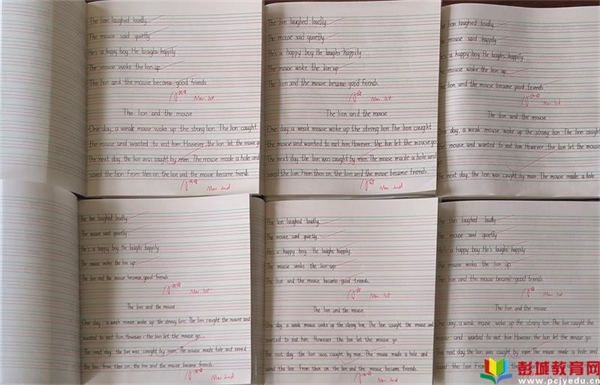 The lion laughed loudly.
The mouse said quietly.
He's a happy boy. He laughs happily.
The mouse woke the lion up.
The lion and the mouse became good friends.
Mar. 1st
The lion and the mouse
One day, a weak mouse woke up the strong lion. The lion caught
the mouse and wanted to eat him. However, the lion let the mouse go.
The next day, the lion was caught by men. The mouse made a hole and
saved the lion. From then on, the lion and the mouse became friends.
Mar. 2nd
The lion laughed loudly.
The mouse said quietly.
He's a happy boy. He laughs happily.
The mouse woke the lion up.
The lion and the mouse became good friends.
Mar. 1st
The lion and the mouse
One day, a weak mouse woke up the strong lion. The lion caught
the mouse and wanted to eat him. However, the lion let the mouse go.
The next day, the lion was caught by men. The mouse made a hole and
saved the lion. From then on, the lion and the mouse became friends.
Mar. 2nd
lion laughed loudly.
mouse said happily.
a happy boy. He laughs happily.
mouse woke the lion up.
lion and the mouse became good friends.
The lion and the mouse
One day, a weak mouse woke up the strong lion. The lion
mouse and wanted to eat him. However, the lion let the mouse
The next day, the lion was caught by men. The mouse made a hole
The lion laughed loudly.
The mouse said quietly.
He's a happy boy. He laughs happily.
The mouse woke the lion up.
The lion and the mouse became good friends.
Mar. 1st
The lion and the mouse
One day, a weak mouse woke up the strong lion. The lion caught the mouse and
wanted to eat him. However, the lion let the mouse go.
The next day, the lion was caught by men. The mouse made hole and
the lion. From then on, the lion and the mouse became friends.
Mar. 2nd
The lion laughed loudly.
The mouse said quietly.
He's a happy boy. He laughs happily.
The mouse woke the lion up.
The lion and the mouse became good friends.
Mar. 1st
The lion and the mouse
One day, a weak mouse woke up the strong lion. The lion caught the mouse and
wanted to eat him. However, the lion let the mouse go.
The next day, the lion was caught by men. The mouse made a hole and
saved the lion. From then on, the lion and the mouse became friends.
The lion laughed loudly.
The mouse said quietly.
He's a happy boy. He laughs happily.
The mouse woke the lion up.
The lion and the mouse became good friends.
Mar. 1st
The lion and the mouse
One day, a weak mouse woke up the strong lion. The lion
and wanted to eat him. However, the lion let the mouse
The next day, the lion was caught by men. The mouse made a
彭城教育网
www.pcjyedu.cn